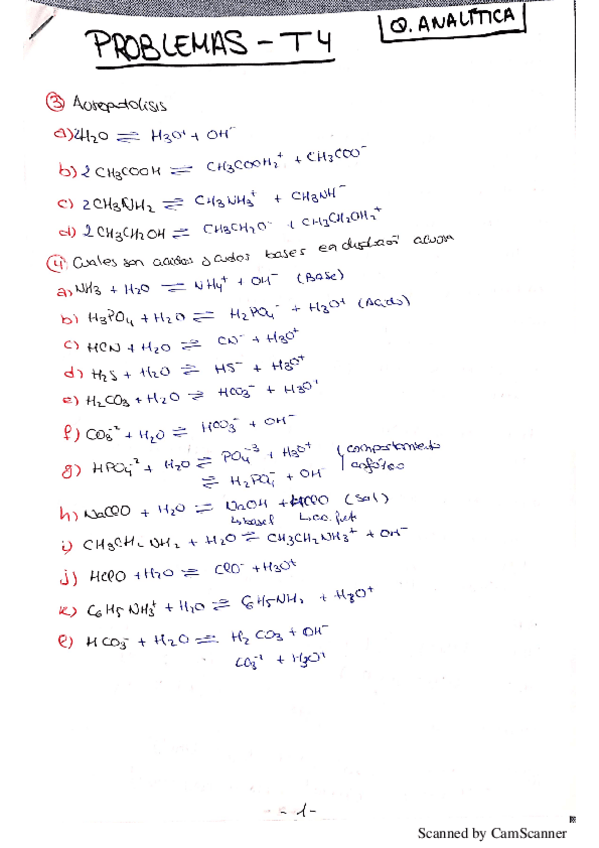 PROBLEMAS - T4
Q. ANALÍTICA
③ Autoprotólisis
a) 2H2O ⇌ H3O+ + OH-
b) 2 CH3COOH ⇌ CH3COOH2+ + CH3COO-
c) 2CH3NH2 ⇌ CH3NH3+ + CH3NH-
d) 2 CH3CH2OH ⇌ CH3CH2O- + CH3CH2OH2+
④ Cuales son acidos y cuales bases en disolución acuosa
a) NH3 + H2O ⇌ NH4+ + OH- (Base)
b) H3PO4 + H2O ⇌ H2PO4- + H3O+ (Acido)
c) HCN + H2O ⇌ CN- + H3O+
d) H2S + H2O ⇌ HS- + H3O+
e) H2CO3 + H2O ⇌ HCO3- + H3O+
f) CO3-2 + H2O ⇌ HCO3- + OH-
g) HPO4-2 + H2O ⇌ PO4-3 + H3O+ comportamiento
⇌ H2PO4- + OH- anfótero
h) NaClO + H2O ⇌ NaOH + HClO (sal)
↳base f ↳
i) CH3CH2NH2 + H2O ⇌ CH3CH2NH3+ + OH-
j) HClO + H2O ⇌ ClO- + H3O+
k) C6H5NH3+ + H2O ⇌ C6H5NH2 + H3O+
l) HCO3- + H2O ⇌ H2CO3 + OH-
CO3-2 + H3O+
-1-
Scanned by CamScanner